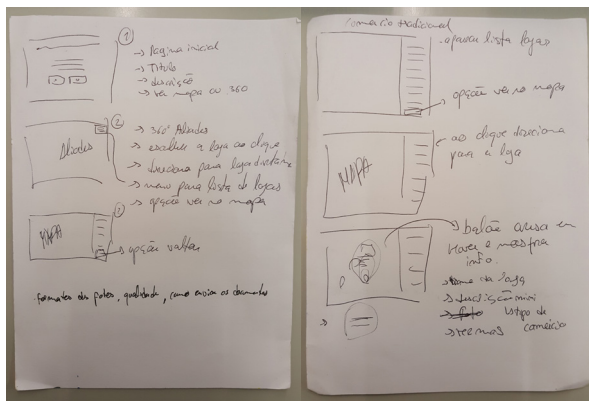 ①
→ Pagina inicial
→ Titulo
→ descrição
→ ver mapa ou 360
②
Aliados
→ 360º Aliados
→ escolher a loja ao clique
→ direciona para loja
→ menu para lista de lojas
→ opção ver no mapa
MAPA
→ opção voltar
. formatos das fotos, qualidade, como enviar os documentos
Comercio tradicional
. aparece lista lojas
→ opção ver no mapa
MAPA
ao clique direciona
para a loja
→ balão
hover e mostra
info.
→ nome da loja
→ descrição mini
→ tipo de
comércio
→ ver mais